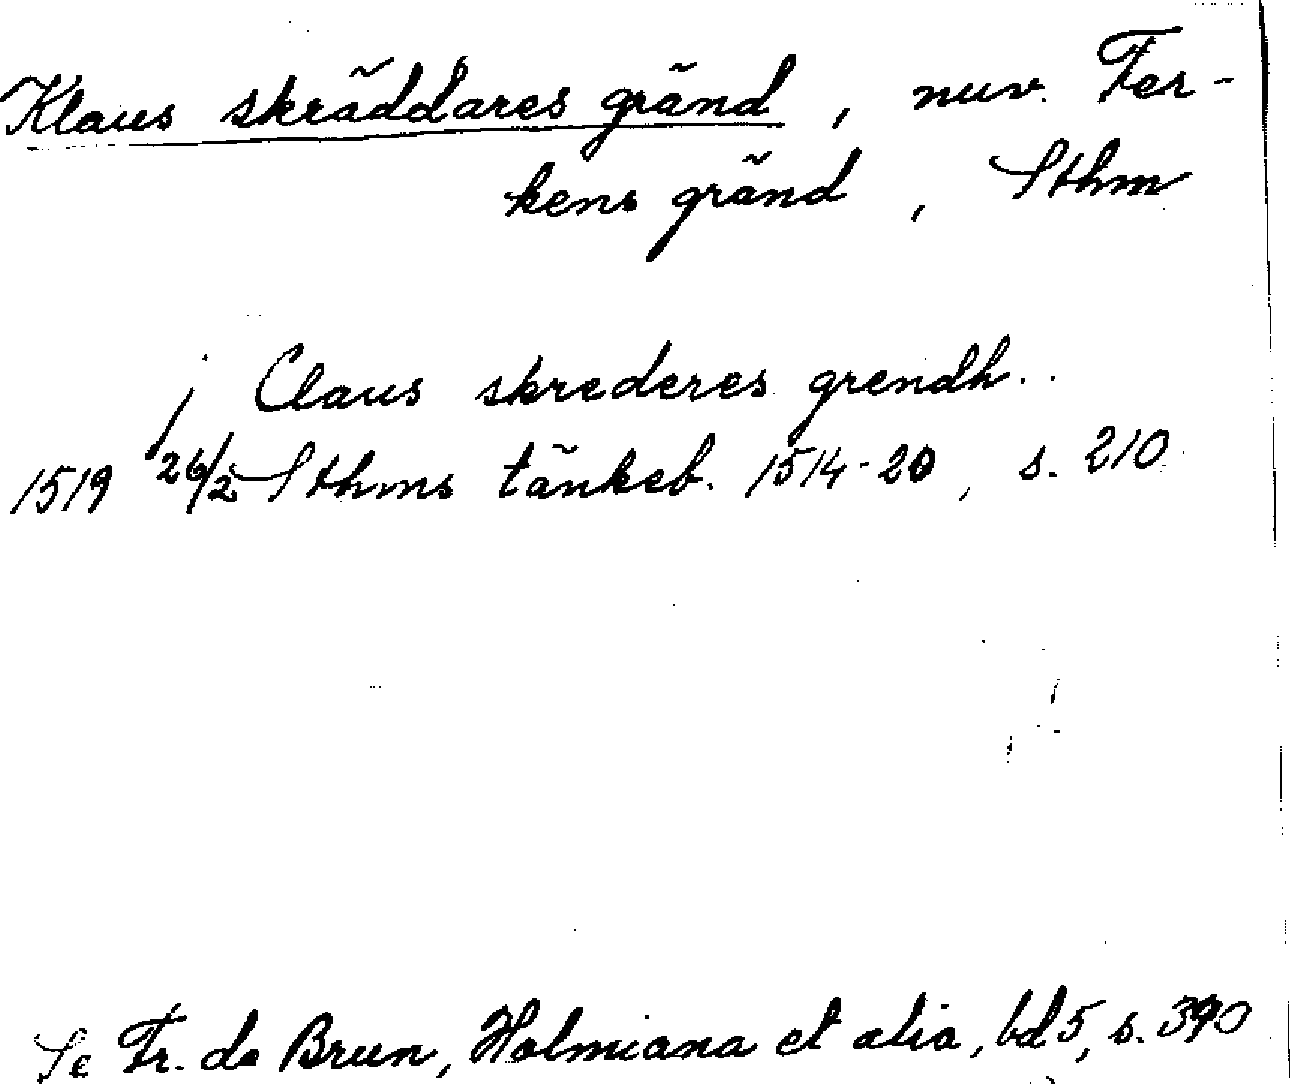 Klaus skräddares gränd, nuv. Fer-
kens gränd, Sthm
j Claus skrederes grendh..
1519 26/2 Sthms tänkeb. 1514-20, s. 210
Se Fr. de Brun, Holmiana et alia, bd 5, s. 390